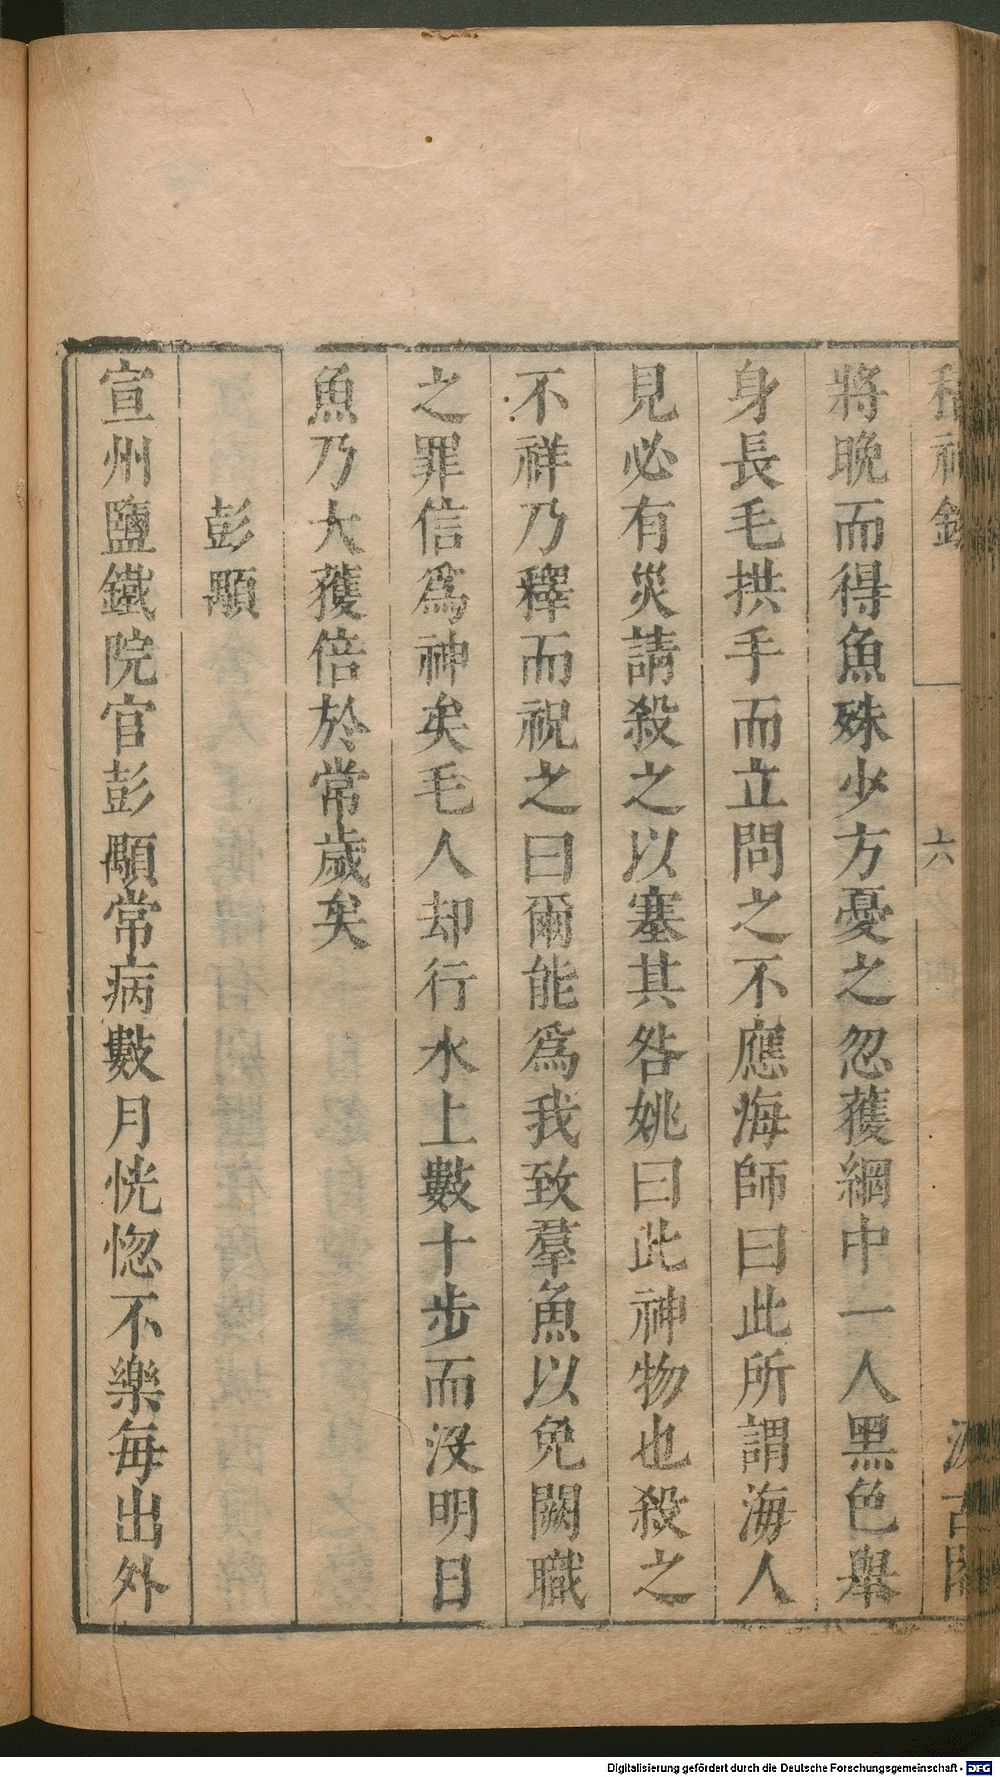 稽神錄
六
汲古閣
將晚而得魚殊少方憂之忽獲網中一人黑色舉
身長毛拱手而立問之不應海師曰此所謂海人
見必有災請殺之以塞其咎姚曰此神物也殺之
不祥乃釋而祝之曰爾能爲我致羣魚以免闕職
之罪信爲神矣毛人却行水上數十步而沒明日
魚乃大獲倍於常歲矣
彭顒
宣州鹽鐵院官彭顒常病數月恍惚不樂每出外
Digitalisierung gefördert durch die Deutsche Forschungsgemeinschaft - DFG